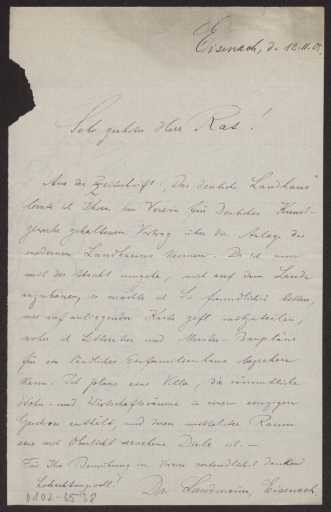 Eisenach, d. 12.11.05.
Sehr geehrter Herr Rat!
Aus der Zeitschrift „Das deutsche Landhaus"
lernte ich Ihren im Verein für deutsches Kunst-
gewerbe gehaltenen Vortrag über die Anlage des
modernen Landhauses kennen. Da ich nun
mit der Absicht umgehe, mich auf dem Lande
anzubauen, so möchte ich Sie freundlichst bitten,
mir auf anliegender Karte gefl. mitzuteilen,
woher ich Litteratur und Muster-Baupläne
für ein ländliches Einfamilienhaus beziehen
kann. Ich plane eine Villa, die sämmtliche
Wohn- und Wirtschaftsräume in einem einzigen
Geschoss enthält, und deren mittelster Raum
eine mit Oberlicht versehene Diele ist. —
Für Ihre Bemühung im Voraus verbindlichst dankend
Hochachtungsvoll!
Dr. Landmann, Eisenach